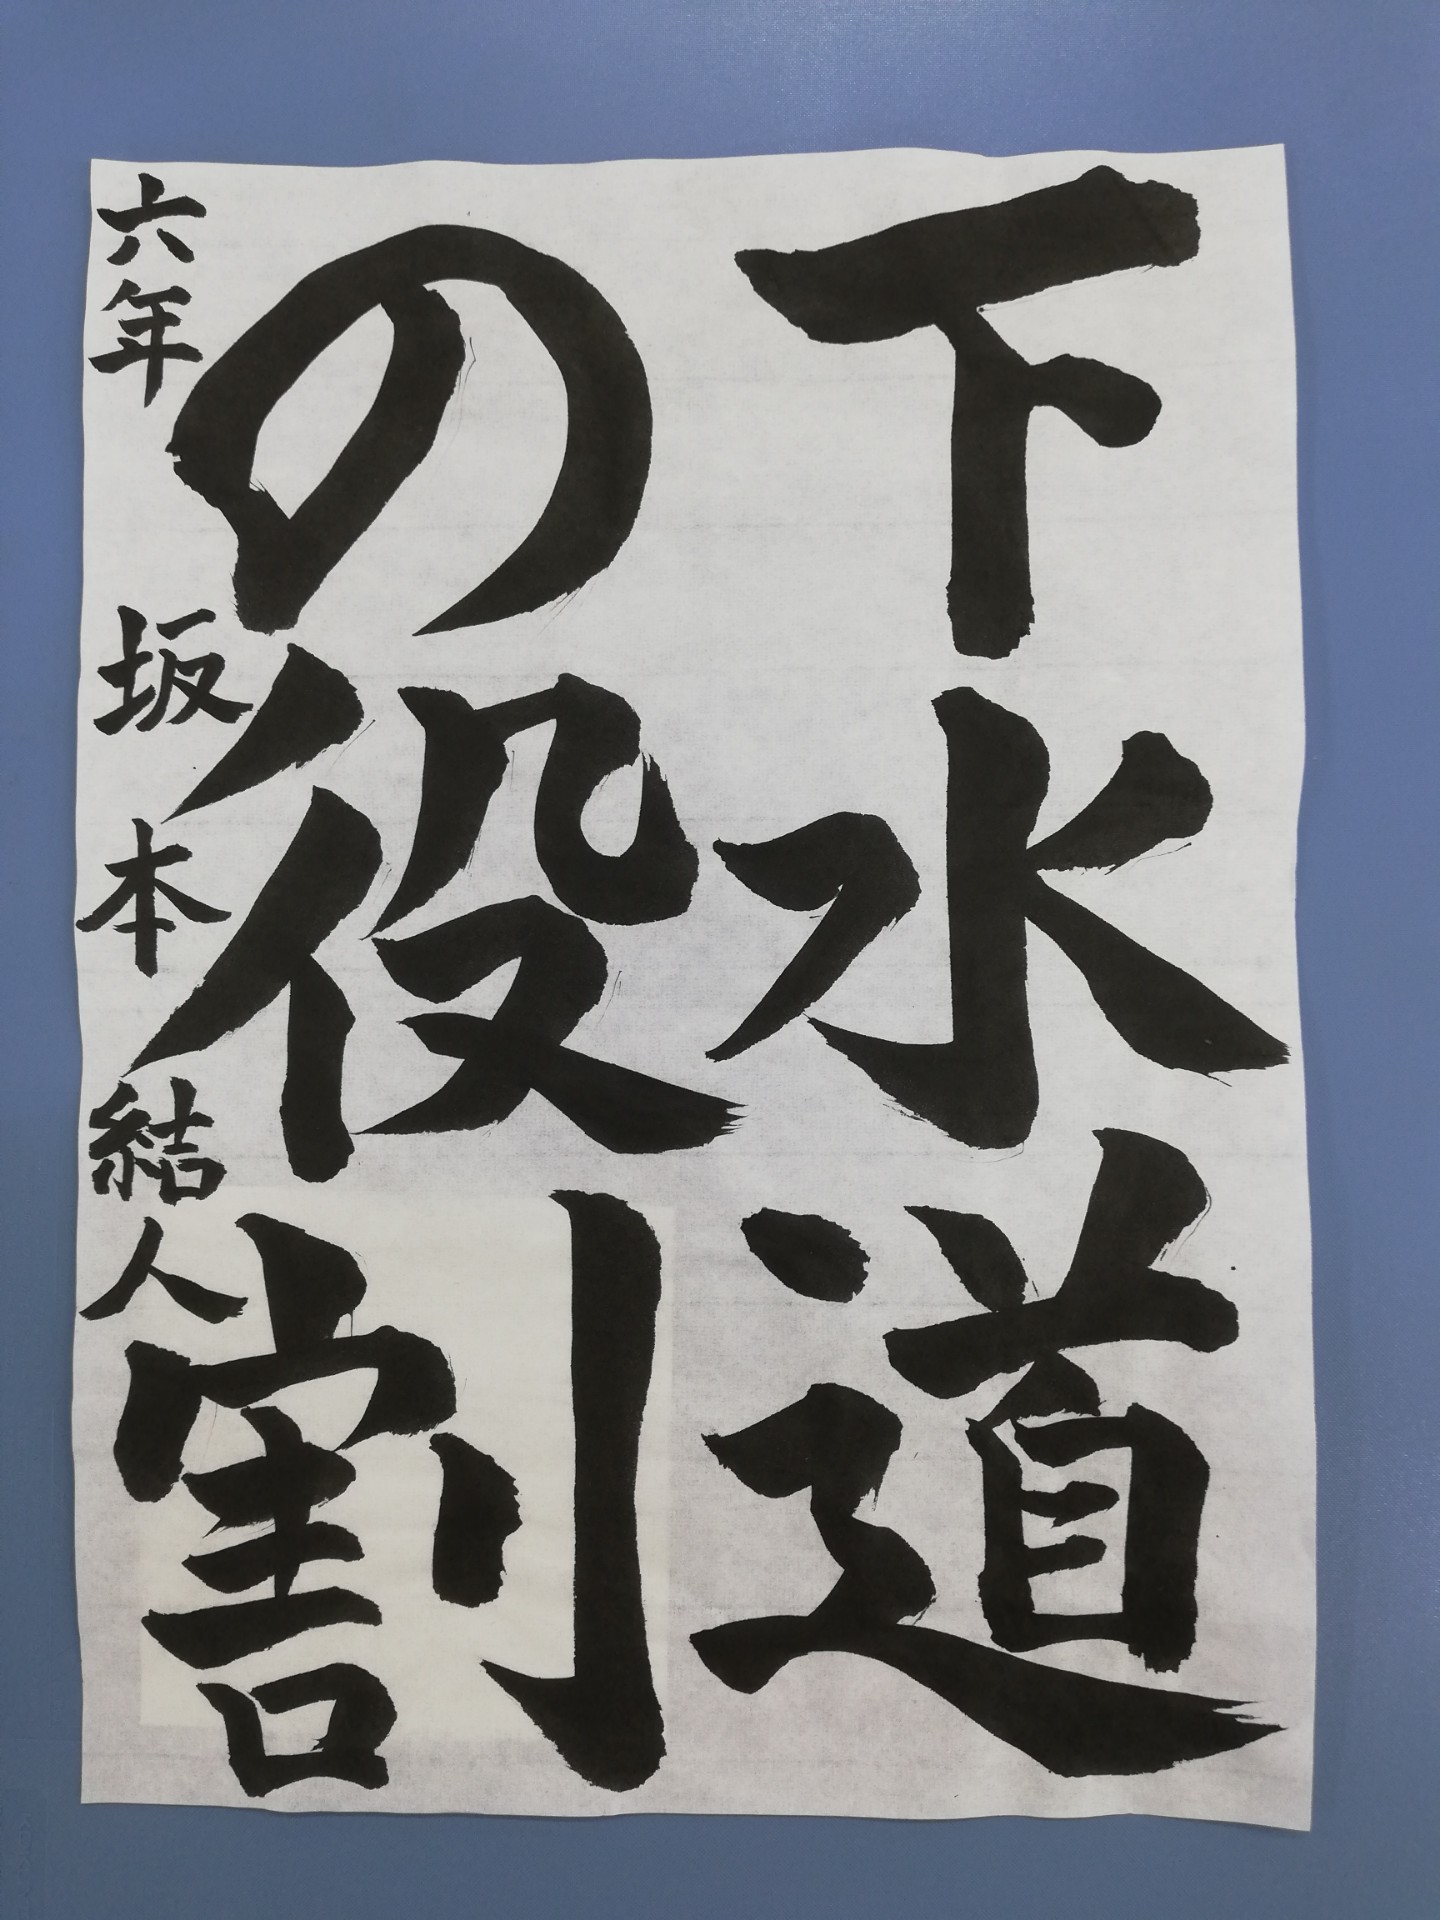 下水道
の役割
六年 坂本結人